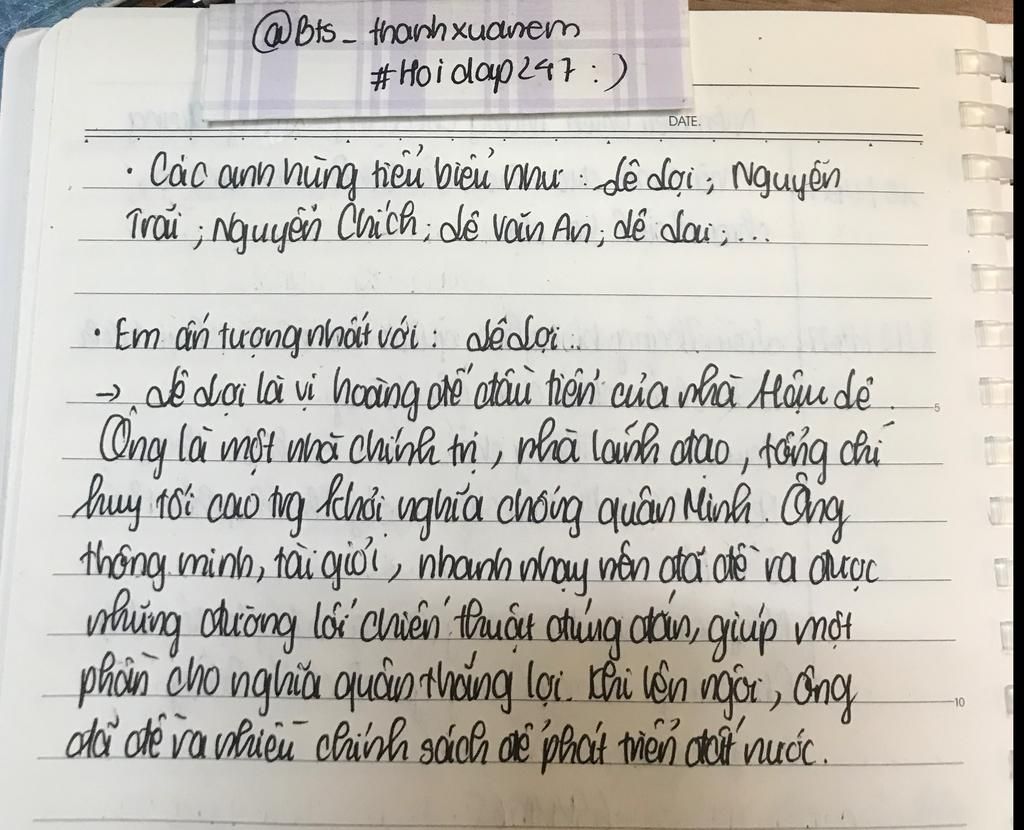 @Bts_thanhxuanem
#Hoidap247 :)
DATE.
· Các anh hùng tiểu biểu như : Lê Lợi ; Nguyễn
Trãi ; Nguyễn Chích ; Lê Văn An ; Lê Lai ; ...
· Em ấn tượng nhất với : Lê Lợi :
→ Lê Lợi là vị hoàng đế đầu tiên của nhà Hậu Lê.
5
Ông là một nhà chính trị, nhà lãnh đạo, tổng chỉ
huy tối cao trg khởi nghĩa chống quân Minh. Ông
thông minh, tài giỏi, nhanh nhạy nên đã đề ra được
những đường lối chiến thuật đúng đắn, giúp một
phần cho nghĩa quân thắng lợi. Khi lên ngôi, ông
10
đã đề ra nhiều chính sách để phát triển đất nước.